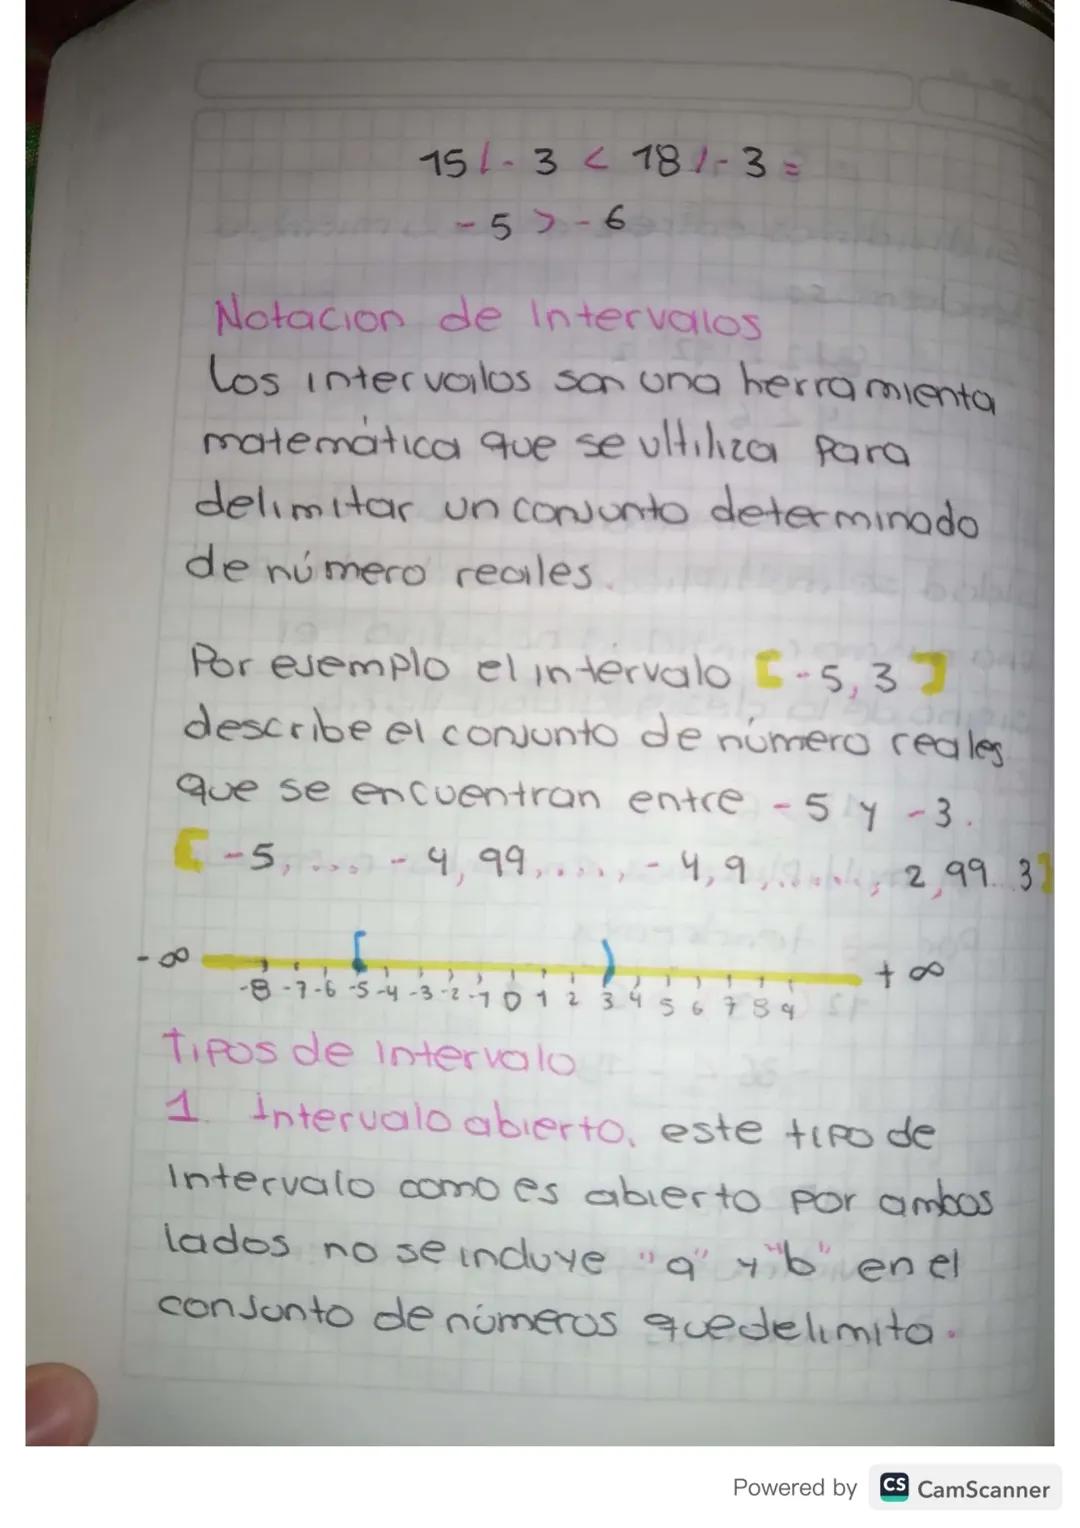 15 / - 3 < 18 / - 3 =
- 5 > - 6
Notacion de Intervalos
los intervalos son una herramienta
matemática que se ultiliza para
delimitar un conjunto determinado
de número reales.
Por ejemplo el intervalo [-5, 3]
describe el conjunto de número reales
que se encuentran entre - 5 y - 3.
[-5, ... - 4, 99, ...., - 4, 9, ....., 2, 99...3]
- ∞ [ ) + ∞
-8 -7 -6 -5 -4 -3 -2 -1 0 1 2 3 4 5 6 7 8 9
Tipos de intervalo
1. Intervalo abierto, este tipo de
Intervalo como es abierto por ambos
lados no se incluye "a" y "b" en el
conjunto de números que delimita.
Powered by CS CamScanner